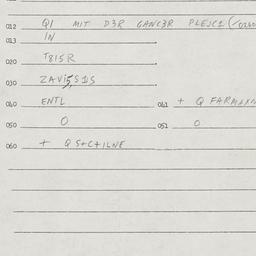 012 Q1 MIT D3R GANC3R PLEJC1
013 IN
020 T815R
030 ZAVi5,S1S
040 ENTL 041 + Q FARMAXN
050 0 051 0
060 + Q S+C+ILNE